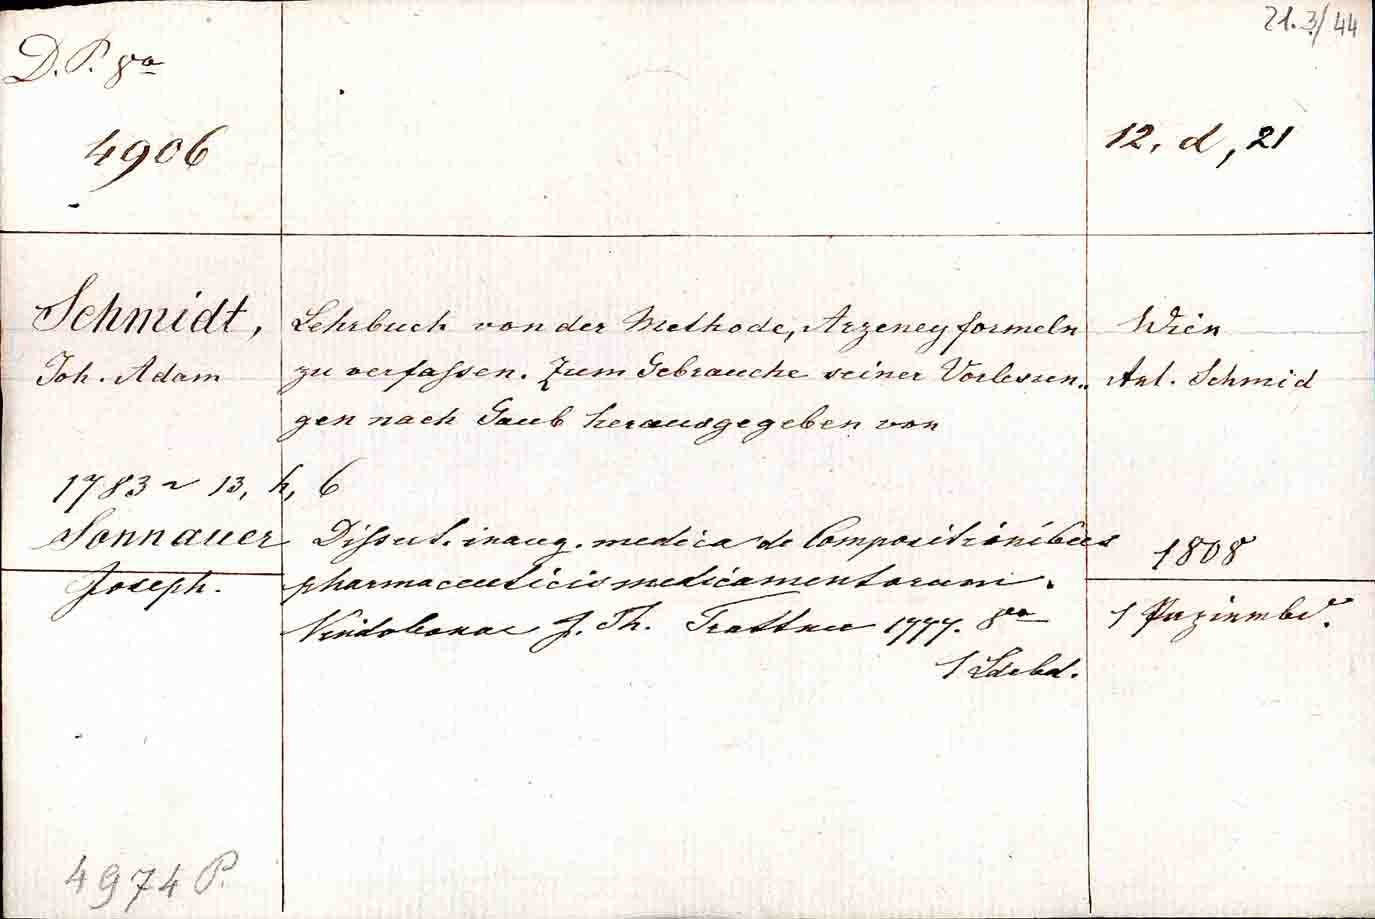 21.3/44
D. P. 8vo
4906
12, d, 21
Schmidt,
Joh. Adam
Lehrbuch von der Methode, Arzeneyformeln
zu verfaßen. Zum Gebrauche seiner Vorlesun-
gen nach Gaub herausgegeben von
Wien
Ant. Schmid
1783 ~ 13, h, 6
Sonnauer
Joseph.
Dissert. inaug. medica de Compositionibus
pharmaceuticis medicamentorum.
Vindobonae J. Th. Trattner 1777. 8vo
1 Ldrbd.
1808
1 Papiermbd.
4974 P.